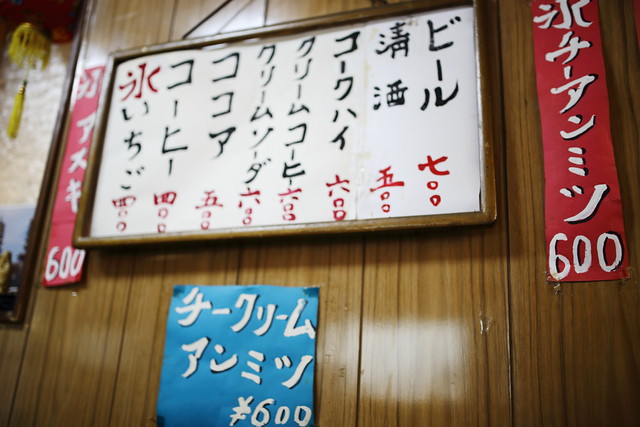 氷チーアンミツ
600
ビール 七〇〇
清酒 五〇〇
コークハイ 六〇〇
クリームコーヒー 六〇〇
クリームソーダ 六〇〇
ココア 五〇〇
コーヒー 四〇〇
氷いちご 四〇〇
氷アズキ
600
チークリーム
アンミツ
¥600